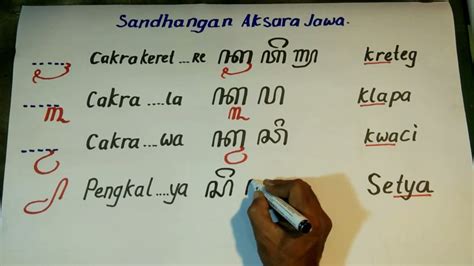 Sandhangan Aksara Jawa.
Cakra keret ... Re kreteg
Cakra .... la ꦏ꧀ꦭꦥ klapa
Cakra ... wa ꦏ꧀ꦮꦕꦶ kwaci
Pengkal .... ya Setya